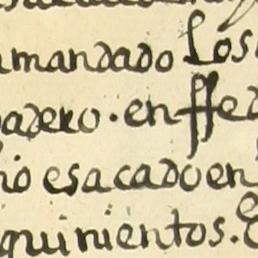 mandado los
adero. en ffe d
ho esacado en
quinientos.